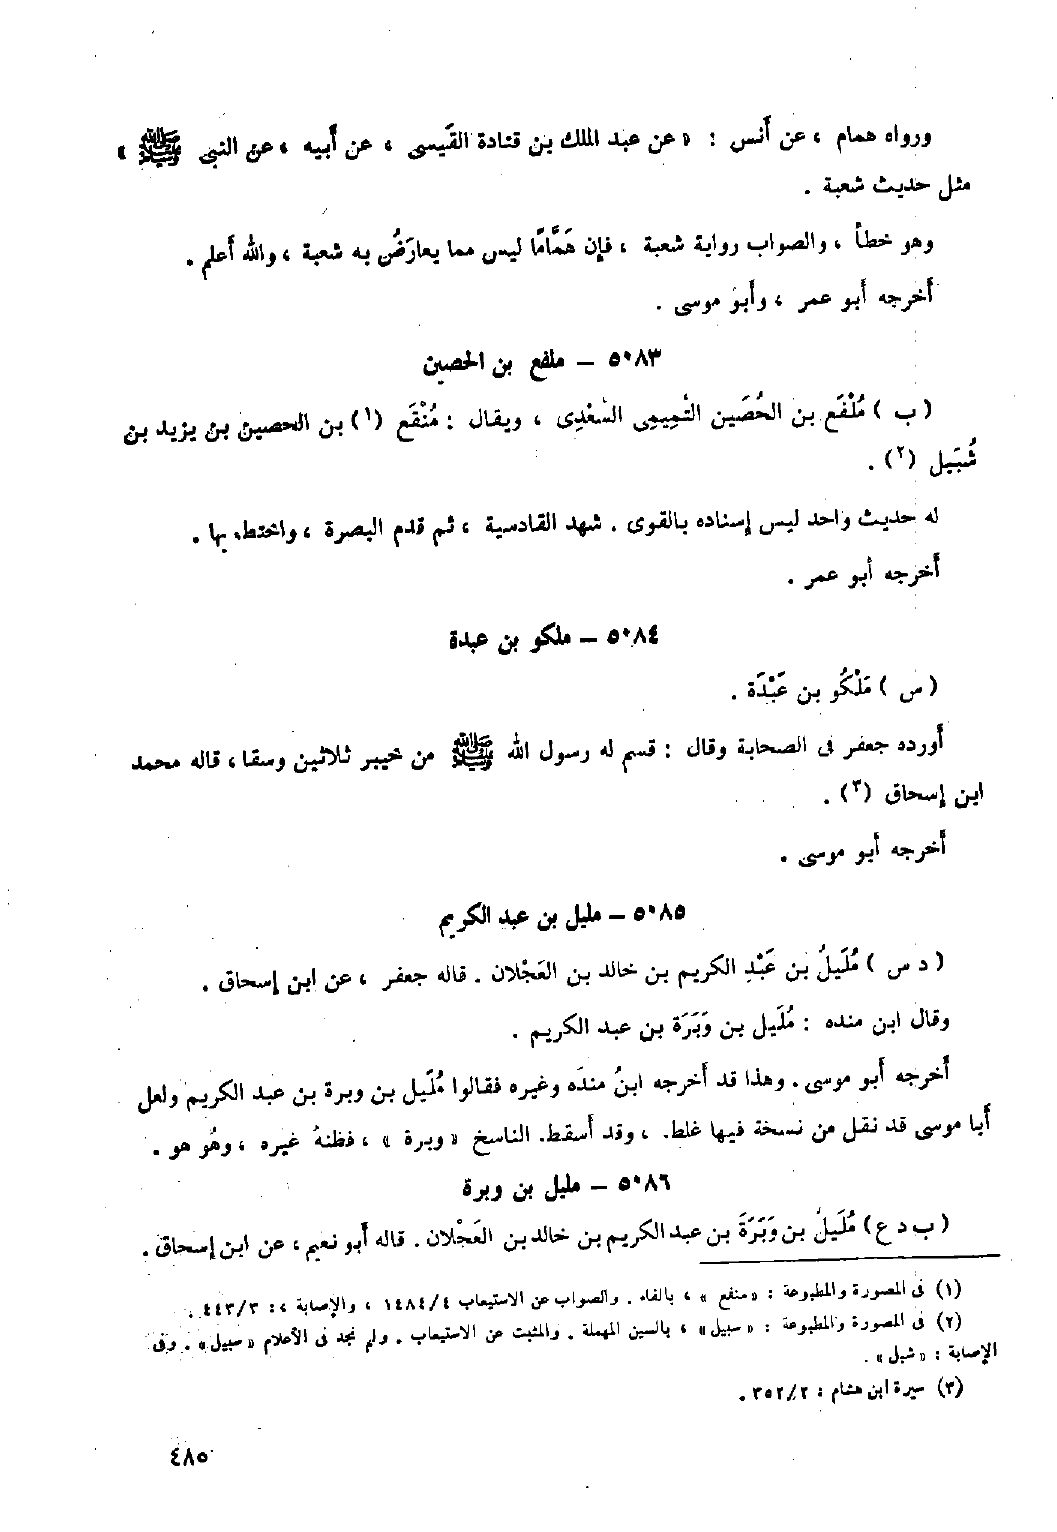 ورواه همام ، عن أنس : « عن عبد الملك بن قتادة القَيسى ، عن أبيه ، عن النبى ﷺ »
مثل حديث شعبة .
وهو خطأ ، والصواب رواية شعبة ، فإن هَمَّامًا ليس مما يعارَضُ به شعبة ، والله أعلم .
أخرجه أبو عمر ، وأبو موسى .
٥٠٨٣ – ملفع بن الحصين
( ب ) مُلْفَع بن الحُصَين التَّمِيمِى السَّعْدِى ، ويقال : مُنْقَع (١) بن الحصين بن يزيد بن
شُبَيل (٢) .
له حديث واحد ليس إسناده بالقوى . شهد القادسية ، ثم قدم البصرة ، واختط بها .
أخرجه أبو عمر .
٥٠٨٤ – ملكو بن عبدة
( س ) مَلْكُو بن عَبْدَة .
أورده جعفر فى الصحابة وقال : قسم له رسول الله ﷺ من خيبر ثلاثين وسقا ، قاله محمد
ابن إسحاق (٣) .
أخرجه أبو موسى .
٥٠٨٥ – مليل بن عبد الكريم
( د س ) مُلَيلُ بن عَبْدِ الكريم بن خالد بن العَجْلان . قاله جعفر ، عن ابن إسحاق .
وقال ابن منده : مُلَيل بن وَبَرَة بن عبد الكريم .
أخرجه أبو موسى . وهذا قد أخرجه ابنُ منْدَه وغيره فقالوا مُلَيل بن وبرة بن عبد الكريم ولعل
أبا موسى قد نقل من نسخة فيها غلط ، وقد أسقط الناسخ « وبرة » ، فظنهُ غيره ، وهُو هو .
٥٠٨٦ – مليل بن وبرة
( ب د ع ) مُلَيلُ بن وَبَرَةَ بن عبد الكريم بن خالد بن العَجْلان . قاله أبو نعيم ، عن ابن إسحاق .
(١) فى المصورة والمطبوعة : « منفع » ، بالفاء . والصواب عن الاستيعاب ١٤٨٤/٤ ، والإصابة ،: ٤٤٣/٣ .
(٢) فى المصورة والمطبوعة : « سبيل » ، بالسين المهملة . والمثبت عن الاستيعاب . ولم نجد فى الأعلام « سبيل » . وفى
الإصابة : « شبل » .
(٣) سيرة ابن هشام : ٣٥٢/٢ .
٤٨٥